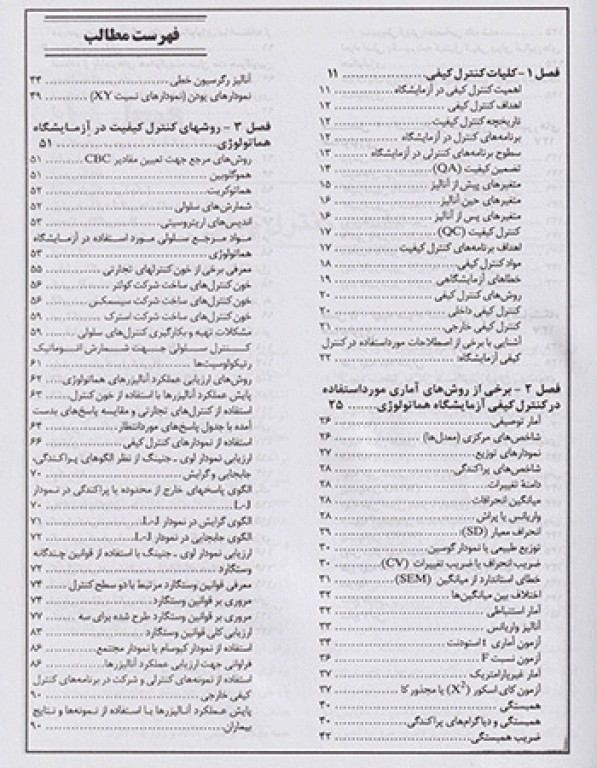 فهرست مطالب
فصل ۱ - کلیات کنترل کیفی .................... ۱۱
اهمیت کنترل کیفی در آزمایشگاه .................... ۱۱
اهداف کنترل کیفی .................... ۱۲
تاریخچه کنترل کیفیت .................... ۱۲
برنامه‌های کنترل در آزمایشگاه .................... ۱۲
سطوح برنامه‌های کنترلی در آزمایشگاه .................... ۱۳
تضمین کیفیت (QA) .................... ۱۴
متغیرهای پیش از آنالیز .................... ۱۵
متغیرهای حین آنالیز .................... ۱۶
متغیرهای پس از آنالیز .................... ۱۶
کنترل کیفیت (QC) .................... ۱۷
اهداف برنامه‌های کنترل کیفیت .................... ۱۷
مواد کنترل کیفی .................... ۱۸
خطاهای آزمایشگاهی .................... ۱۹
روش‌های کنترل کیفی .................... ۲۰
کنترل کیفی داخلی .................... ۲۰
کنترل کیفی خارجی .................... ۲۱
آشنایی با برخی از اصطلاحات مورداستفاده در کنترل
کیفی آزمایشگاه: .................... ۲۲
فصل ۲ - برخی از روش‌های آماری مورداستفاده
در کنترل کیفی آزمایشگاه هماتولوژی ........ ۲۵
آمار توصیفی .................... ۲۶
شاخص‌های مرکزی (معدل‌ها) .................... ۲۶
نمودارهای توزیع .................... ۲۷
شاخص‌های پراکندگی .................... ۲۸
دامنهٔ تغییرات .................... ۲۸
میانگین انحرافات .................... ۲۸
واریانس یا پراش .................... ۲۸
انحراف معیار (SD): .................... ۲۹
توزیع طبیعی یا نمودار گوسین .................... ۳۰
ضریب انحراف یا ضریب تغییرات (CV) .................... ۳۰
خطای استاندارد از میانگین (SEM) .................... ۳۱
اختلاف بین میانگین‌ها .................... ۳۲
آمار استنباطی .................... ۳۲
آنالیز واریانس .................... ۳۳
آزمون آماری t استودنت .................... ۳۴
آزمون نسبت F .................... ۳۶
آمار غیرپارامتریک .................... ۳۷
آزمون کای اسکور (X²) یا مجذور کا .................... ۳۷
همبستگی .................... ۴۰
همبستگی و دیاگرام‌های پراکندگی .................... ۴۰
ضریب همبستگی .................... ۴۲
آنالیز رگرسیون خطی .................... ۴۴
نمودارهای یودن (نمودارهای نسبت XY) .................... ۴۹
فصل ۳ - روشهای کنترل کیفیت در آزمایشگاه
هماتولوژی .................... ۵۱
روش‌های مرجع جهت تعیین مقادیر CBC .................... ۵۱
هموگلوبین .................... ۵۱
هماتوکریت .................... ۵۲
شمارش‌های سلولی .................... ۵۲
اندیس‌های اریتروسیتی .................... ۵۳
مواد مرجع سلولی مورد استفاده در آزمایشگاه
هماتولوژی .................... ۵۳
معرفی برخی از خون کنترلهای تجارتی .................... ۵۵
خون کنترل‌های ساخت شرکت کولتر .................... ۵۶
خون کنترل‌های ساخت شرکت سیسمکس .................... ۵۶
خون کنترل‌های ساخت شرکت استرک .................... ۵۹
مشکلات تهیه و بکارگیری کنترل‌های سلولی .................... ۵۹
کنترل سلولی جهت شمارش اتوماتیک
رتیکولوسیت‌ها .................... ۶۱
روش‌های ارزیابی عملکرد آنالیزرهای هماتولوژی .................... ۶۲
پایش عملکرد آنالیزرها با استفاده از خون کنترل .................... ۶۳
استفاده از کنترل‌های تجارتی و مقایسه پاسخ‌های بدست
آمده با جدول پاسخ‌های موردانتظار .................... ۶۴
استفاده از نمودارهای کنترل کیفی .................... ۶۶
ارزیابی نمودار لوی ـ جنینگ از نظر الگوهای پراکندگی،
جابجایی و گرایش .................... ۷۰
الگوی پاسخهای خارج از محدوده یا پراکندگی در نمودار
L-J .................... ۷۰
الگوی گرایش در نمودار L-J .................... ۷۱
الگوی جابجایی در نمودار L-J .................... ۷۲
ارزیابی نمودار لوی ـ جنینگ با استفاده از قوانین چندگانه
وستگارد .................... ۷۲
معرفی قوانین وستگارد مرتبط با دو سطح کنترل .................... ۷۴
مروری بر قوانین وستگارد .................... ۷۴
مروری بر قوانین وستگارد طرح شده برای سه .................... ۷۷
ارزیابی کلی قوانین وستگارد .................... ۸۳
استفاده از نمودار کیوسام یا نمودار مجتمع .................... ۸۶
فراوانی جهت ارزیابی عملکرد آنالیزرها .................... ۸۶
استفاده از نمونه‌های کنترلی و شرکت در برنامه‌های کنترل
کیفی خارجی .................... ۹۰
پایش عملکرد آنالیزرها با استفاده از نمونه‌ها و نتایج
بیماران .................... ۹۰